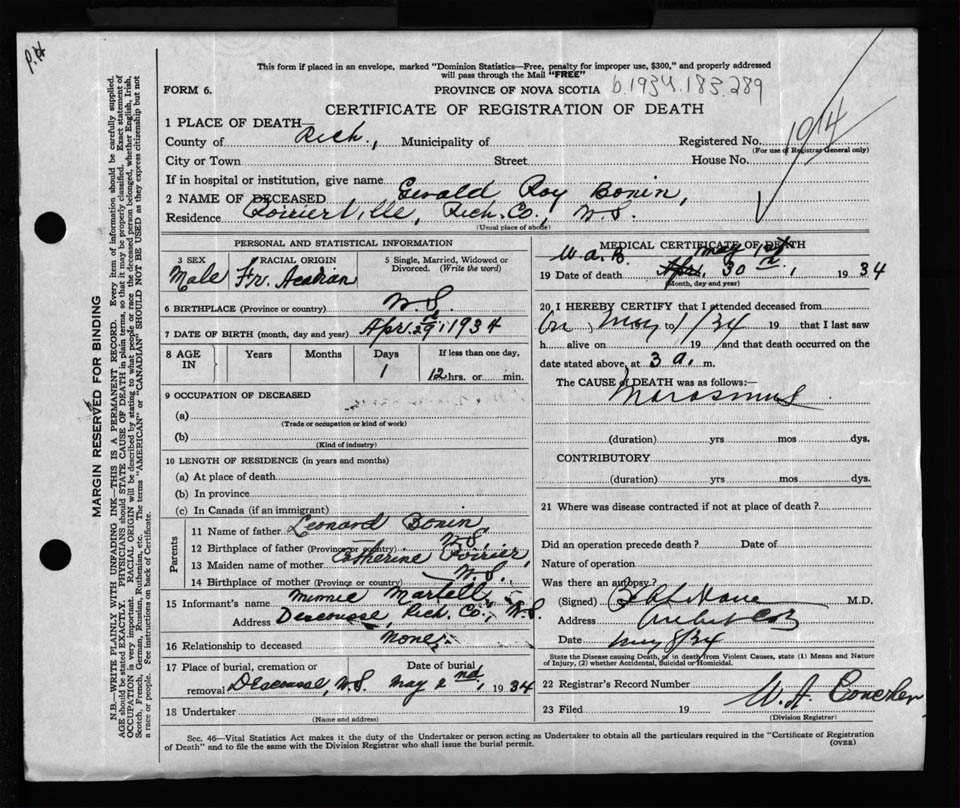 P.H
This form if placed in an envelope, marked "Dominion Statistics—Free, penalty for improper use, $300," and properly addressed
will pass through the Mail "FREE"
FORM 6.
PROVINCE OF NOVA SCOTIA b.1934.183.289
CERTIFICATE OF REGISTRATION OF DEATH
1 PLACE OF DEATH—
County of Rich., Municipality of Registered No. 1914
(For use of Registrar General only)
City or Town Street House No.
If in hospital or institution, give name
2 NAME OF DECEASED Gerald Roy Bonin,
Residence Poirierville, Rich. Co., N.S.
(Usual place of abode)
PERSONAL AND STATISTICAL INFORMATION
3 SEX Male
4 RACIAL ORIGIN Fr. Acadian
5 Single, Married, Widowed or Divorced. (Write the word)
6 BIRTHPLACE (Province or country) N.S.
7 DATE OF BIRTH (month, day and year) Apr. 29, 1934
8 AGE IN Years Months Days 1 If less than one day, 12 hrs. or min.
9 OCCUPATION OF DECEASED
(a)
(Trade or occupation or kind of work)
(b)
(Kind of industry)
10 LENGTH OF RESIDENCE (in years and months)
(a) At place of death
(b) In province
(c) In Canada (if an immigrant)
Parents
11 Name of father Leonard Bonin
12 Birthplace of father (Province or country) N.S.
13 Maiden name of mother Catherine Poirier,
14 Birthplace of mother (Province or country) N.S.
15 Informant's name Minnie Martell,
Address Descousse, Rich. Co., N.S.
16 Relationship to deceased None
17 Place of burial, cremation or removal Descousse, N.S. Date of burial May 2nd, 1934
18 Undertaker
(Name and address)
MEDICAL CERTIFICATE OF DEATH
W.A.B. May 1st
19 Date of death Apr. 30, 1934
(Month, day and year)
20 I HEREBY CERTIFY that I attended deceased from
On May 1/34 to 19 that I last saw
h alive on 19 and that death occurred on the
date stated above, at 3 a. m.
The CAUSE of DEATH was as follows:—
Marasmus
(duration) yrs mos dys.
CONTRIBUTORY
(duration) yrs mos dys.
21 Where was disease contracted if not at place of death?
Did an operation precede death? Date of
Nature of operation
Was there an autopsy?
(Signed) M.D.
Address C.B.
Date May 8/34
State the Disease causing Death, or in death from Violent Causes, state (1) Means and Nature of Injury, (2) whether Accidental, Suicidal or Homicidal.
22 Registrar's Record Number
23 Filed 19 W. A.
(Division Registrar)
Sec. 46—Vital Statistics Act makes it the duty of the Undertaker or person acting as Undertaker to obtain all the particulars required in the "Certificate of Registration
of Death" and to file the same with the Division Registrar who shall issue the burial permit. (OVER)
MARGIN RESERVED FOR BINDING
N.B.—WRITE PLAINLY WITH UNFADING INK—THIS IS A PERMANENT RECORD. Every item of information should be carefully supplied.
AGE should be stated EXACTLY. PHYSICIANS should STATE CAUSE OF DEATH in plain terms, so that it may be properly classified. Exact statement of
OCCUPATION is very important. RACIAL ORIGIN will be described by stating to what people or race the deceased person belonged, whether English, Irish,
Scotch, French, German, Russian, Ruthenian, etc. The terms "AMERICAN" or "CANADIAN" SHOULD NOT BE USED as they express citizenship but not
a race or people. See instructions on back of Certificate.